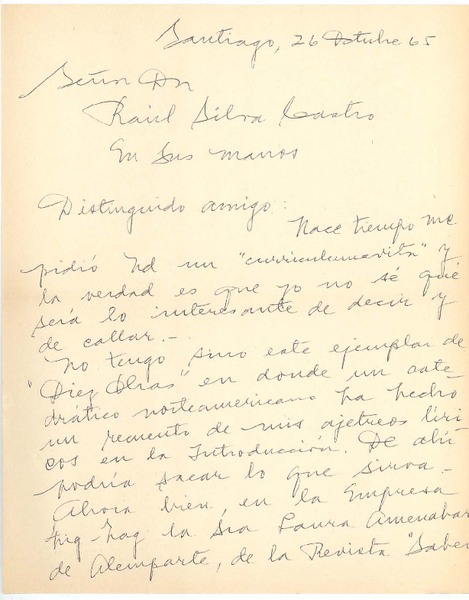 Santiago, 26 Octubre 65
Señor Don
Raúl Silva Castro
En sus manos
Distinguido amigo:
Hace tiempo me
pidió Ud un "curriculumvita" y
la verdad es que yo no sé qué
será lo interesante de decir y
de callar.-
No tengo sino este ejemplar de
"Diez Obras" en donde un cate-
drático norteamericano ha hecho
un recuento de mis ajetreos líri
cos en la Introducción. De ahí
podría sacar lo que sirva.-
Ahora bien, en la Empresa
Zig-Zag la Sra Laura Amenabar
de Alemparte, de la Revista "Saber